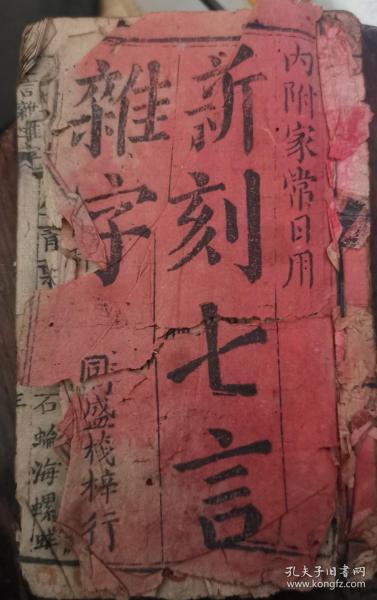 内附家常日用
新刻七言
雜字
同盛棧梓行
石蛤海螺蚌
孔夫子旧书网
www.kongfz.com